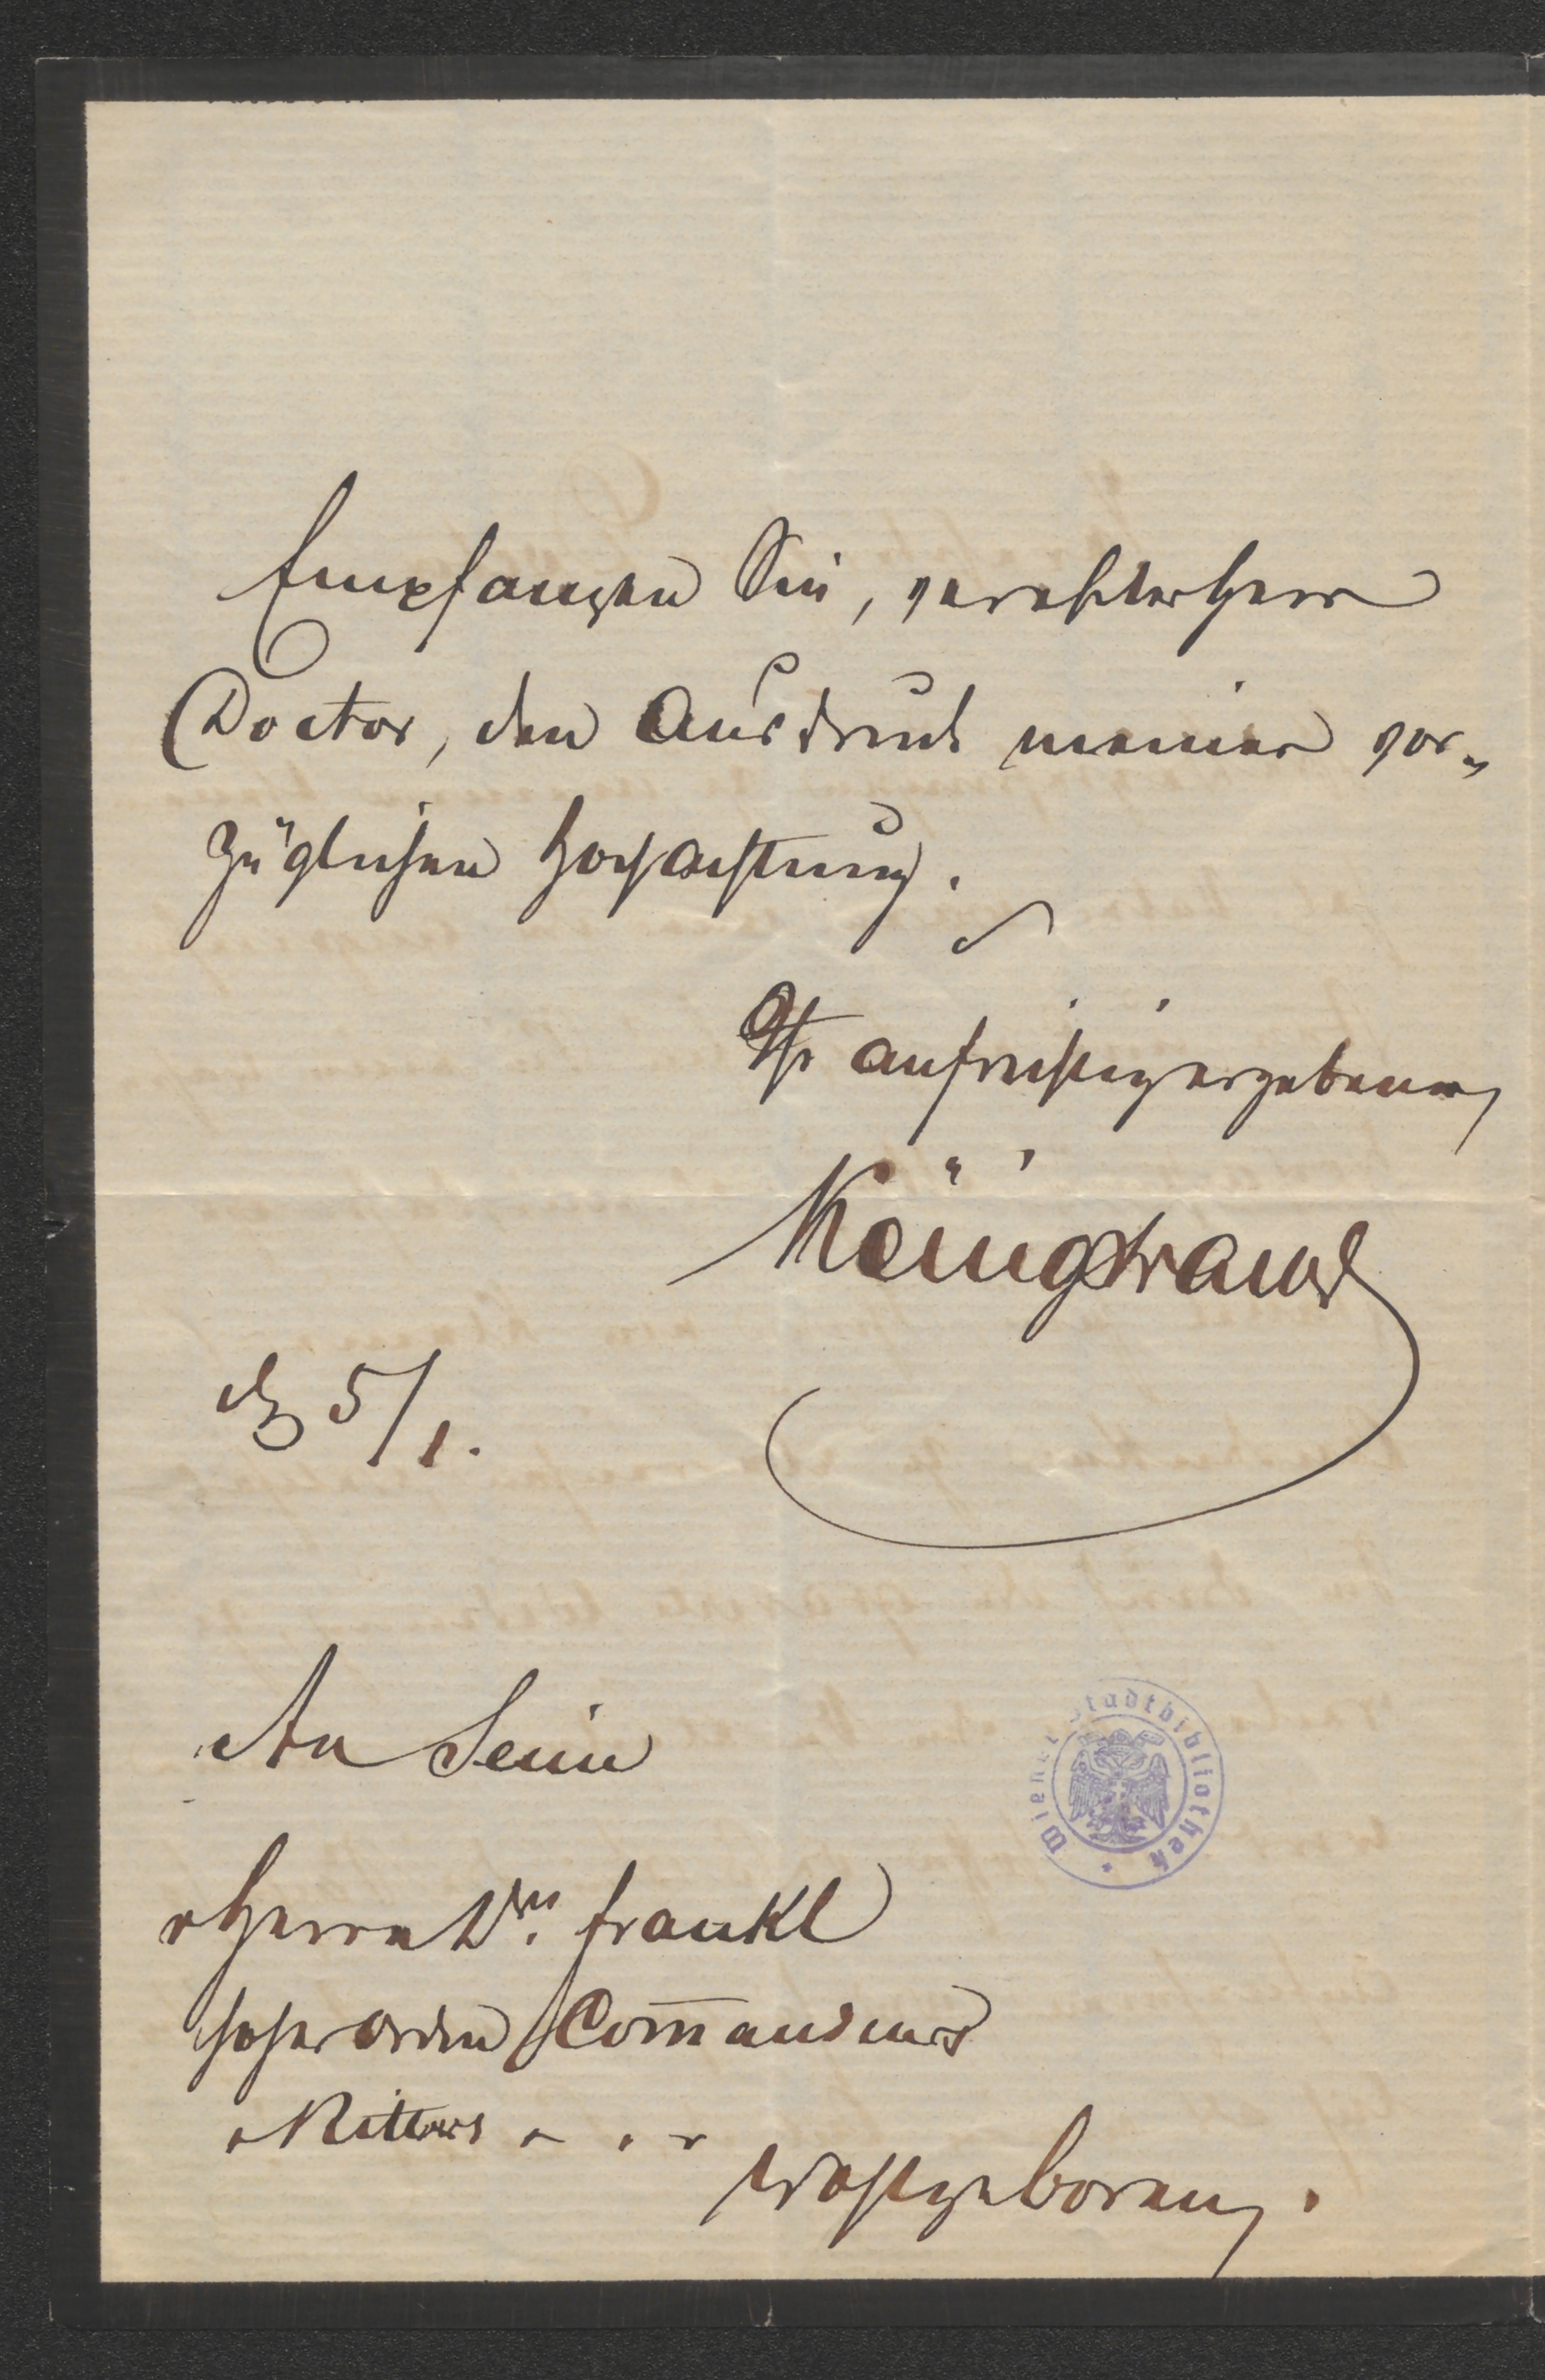 Empfangen Sie, verehrter Herr
Doctor, den Ausdruck meiner vor-
züglichen Hochachtung.
Ihr aufrichtig ergebener
Königstraus
d 5/1.
An Seine
Herrn Drs. Frankl
hoher Orden Com̄andeurs
Ritters
Wohlgeboren.
Wiener Stadtbibliothek